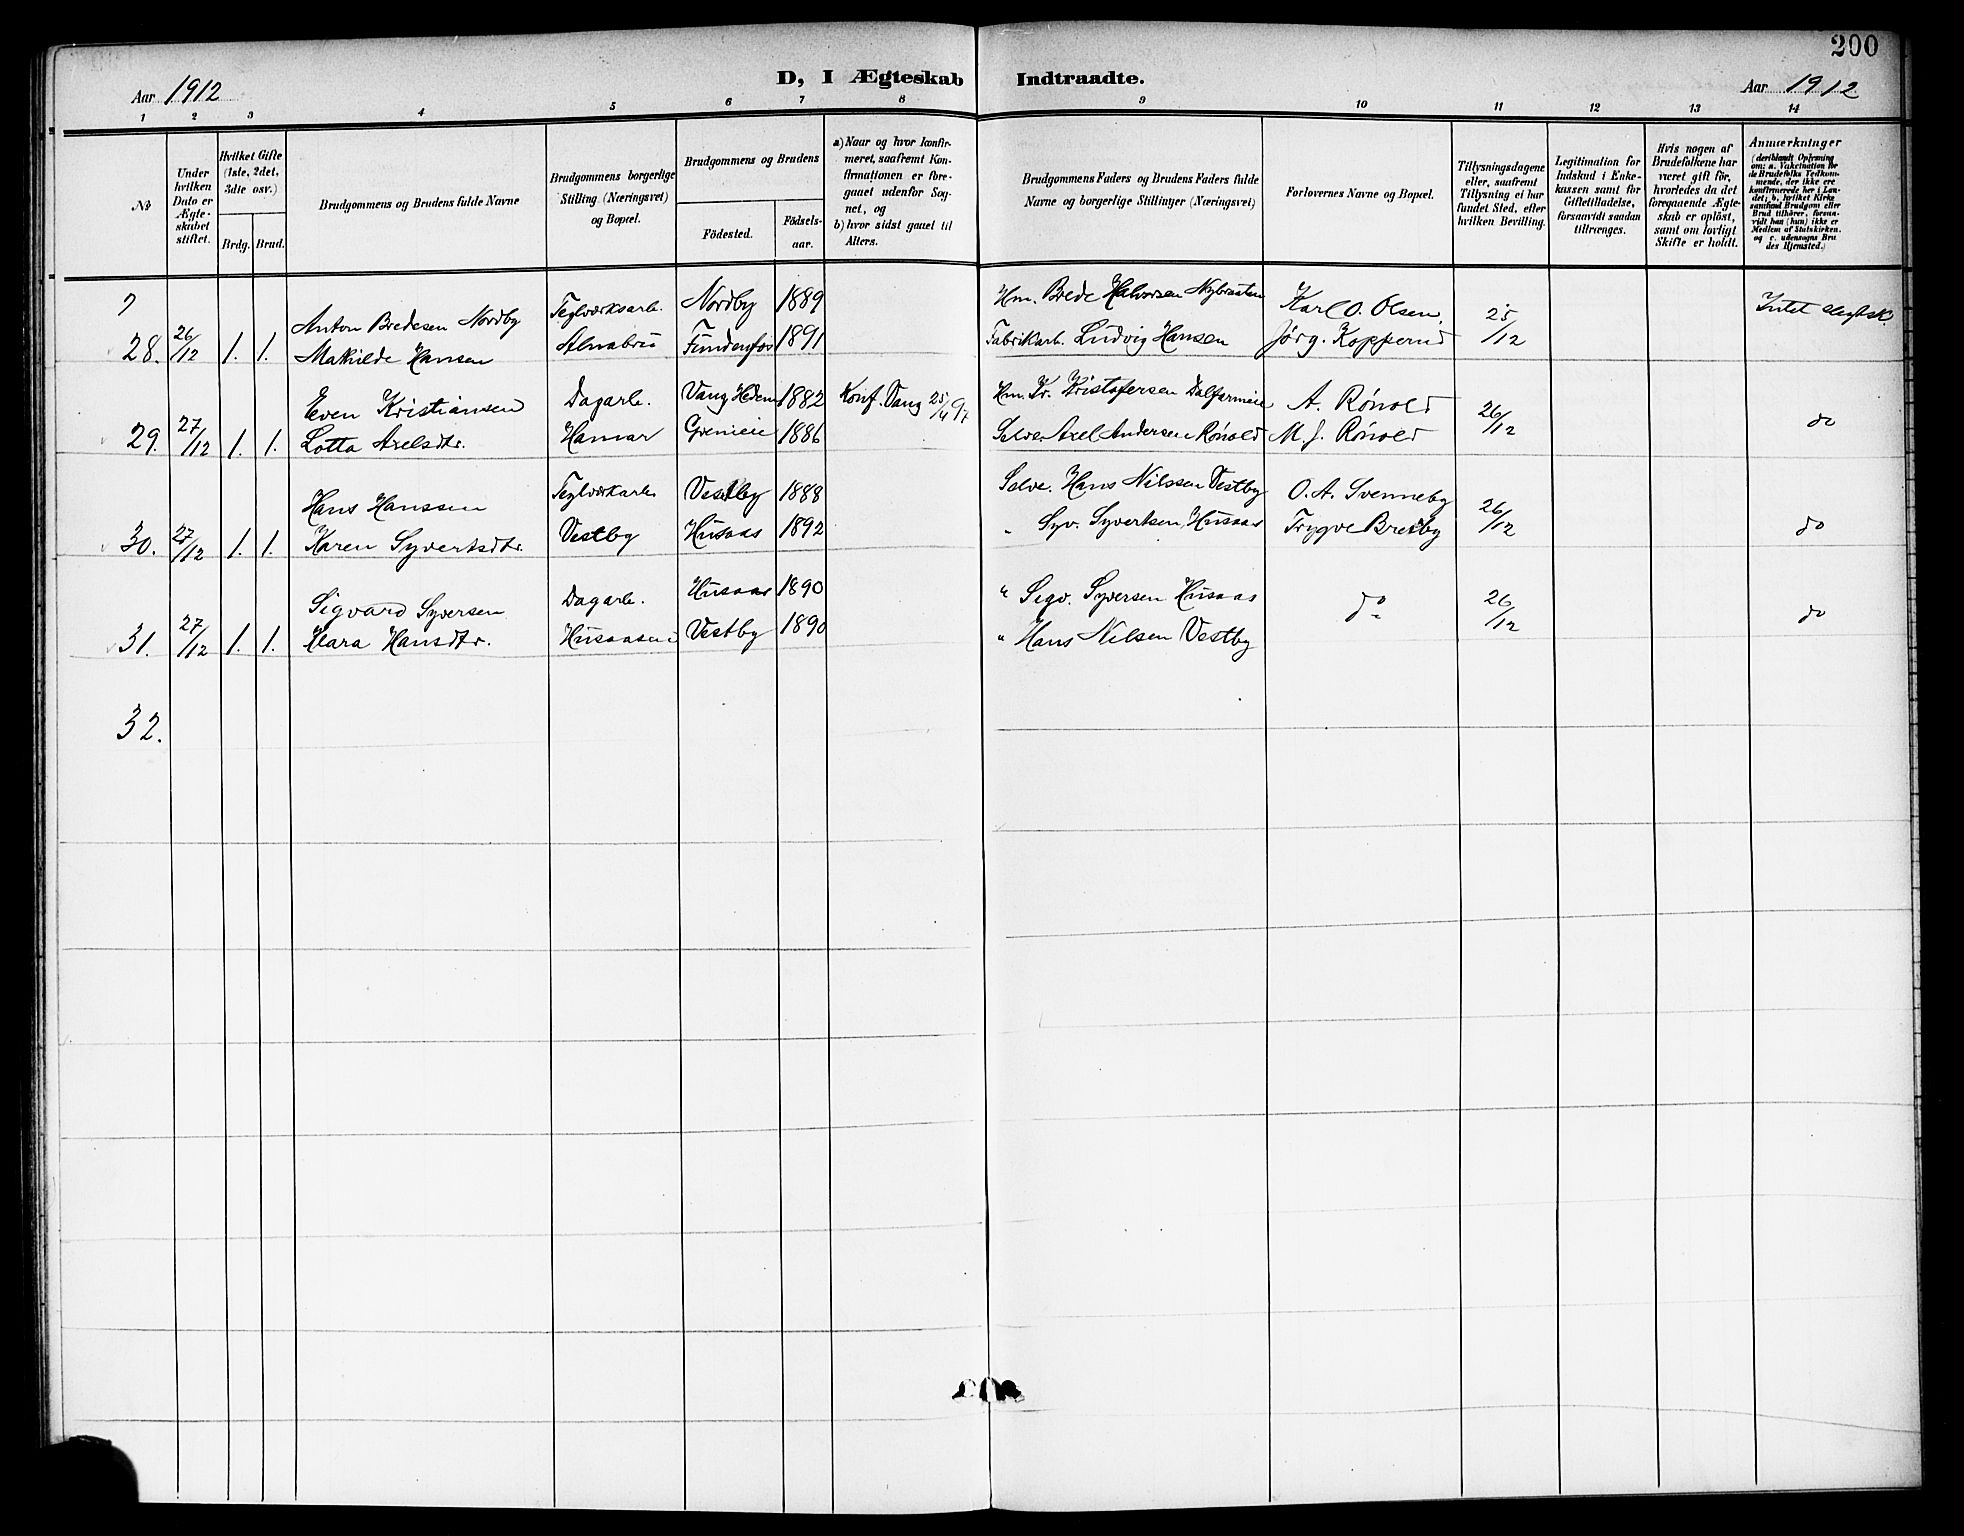 200
D, I Ægteskab Indtraadte.
Aar 1912
Aar 1912
1 2 3 4 5 6 7 8 9 10 11 12 13 14
№
Under
hvilken
Dato er
Ægte-
skabet
stiftet.
Hvilket Gifte
(1ste, 2det,
3die osv.)
Brdg. Brud.
Brudgommens og Brudens fulde Navne
Brudgommens borgerlige
Stilling (Næringsvei)
og Bopæl.
Brudgommens og Brudens
Födested.
Födsels-
aar.
a) Naar og hvor konfir-
meret, saafremt Kon-
firmationen er fore-
gaaet udenfor Sog-
net, og
b) hvor sidst gaaet til
Alters.
Brudgommens Faders og Brudens Faders fulde
Navne og borgerlige Stillinger (Næringsvei)
Forlovernes Navne og Bopæl.
Tillysningsdagene
eller, saafremt
Tillysning ei har
fundet Sted, efter
hvilken Bevilling.
Legitimation for
Indskud i Enke-
kassen samt for
Giftetilladelse,
forsaavidt saadan
tiltrænges.
Hvis nogen af
Brudefolkene har
været gift för,
hvorledes da det
foregaaende Ægte-
skab er oplöst,
samt om lovligt
Skifte er holdt.
Anmærkninger
(deriblandt Oplysning
om: a. Vakcination for
de Brudefolks Vedkom-
mende, der ikke ere
konfirmerede her i Lan-
det; b. hvilket Kirke
samfund Brudgom eller
Brud tilhörer, forsaa-
vidt han (hun) ikke er
Medlem af Statskirken.
og c. udensogns Bru
des Hjemsted.)
28. 26/12 1. 1. Anton Bredesen Nordby Teglværksarb. Nordby 1889 Hm. Brede Halvorsen Karl O. Olsen 25/12 Intet slegtsk.
Mathilde Hansen Alnabru Fundenfos 1891 Fabrikarb. Ludvig Hansen Jörg. Kopperud
29. 27/12 1. 1. Even Kristiansen Dagarb. Vang Hedem 1882 Konf. Vang 25/4 97 Hm. Kr. Kristofersen A. Rönold 26/12 do
Lotta Axelsdtr. Hamar Grenieie 1886 Selve. Axel Andersen Rönold M. J. Rönold
30. 27/12 1. 1. Hans Hanssen Teglværkarb Vestby 1888 Selve. Hans Nilssen Vestby O. A. Svenneby 26/12 do
Karen Syvertsdtr. Vestby Husaas 1892 „ Syv. Syvertsen, Husaas Trygve Bresby
31. 27/12 1. 1. Sigvard Syversen Dagarb. Husaas 1890 „ Sigv. Syversen Husaas do 26/12 do
Klara Hansdtr. Husaasen Vestby 1890 „ Hans Nilsen Vestby
32.